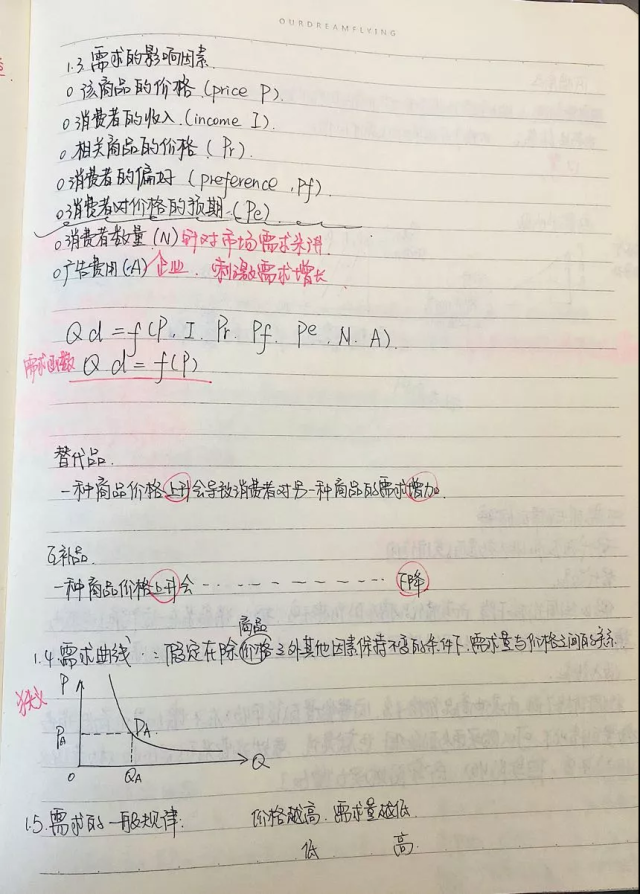 OURDREAMFLYING
1.3 需求的影响因素
o 该商品的价格 (price P)
o 消费者的收入 (income I)
o 相关商品的价格 (Pr)
o 消费者的偏好 (preference, Pf)
o 消费者对价格的预期 (Pe)
o 消费者数量 (N) 针对市场需求来讲
o 广告费用 (A) 企业 刺激需求增长
Qd = f(P, I, Pr, Pf, Pe, N, A)
需求函数 Qd = f(P)
替代品
一种商品价格上升会导致消费者对另一种商品的需求增加
互补品
一种商品价格上升会 - - - - - - - - - - 下降
商品
1.4 需求曲线 : 假定在除价格之外其他因素保持不变的条件下,需求量与价格之间的关系
狭义
P
PA PA
O QA Q
1.5 需求的一般规律 价格越高 需求量越低
低 高